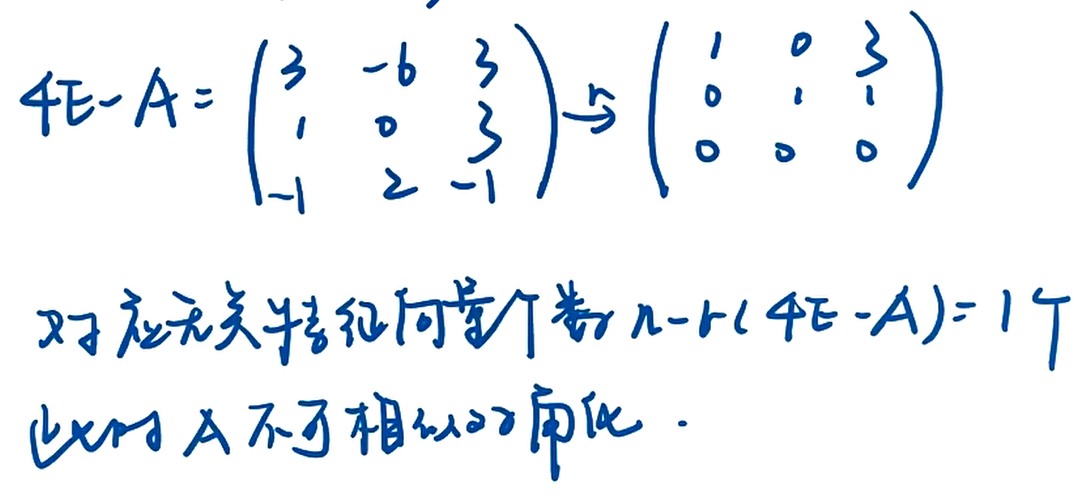 4E-A= ( 3 -6 3 ) r→ ( 1 0 3 )
( 1 0 3 ) ( 0 1 1 )
( -1 2 -1 ) ( 0 0 0 )
对应无关特征向量个数 n-r(4E-A)=1个
此时A不可相似对角化.